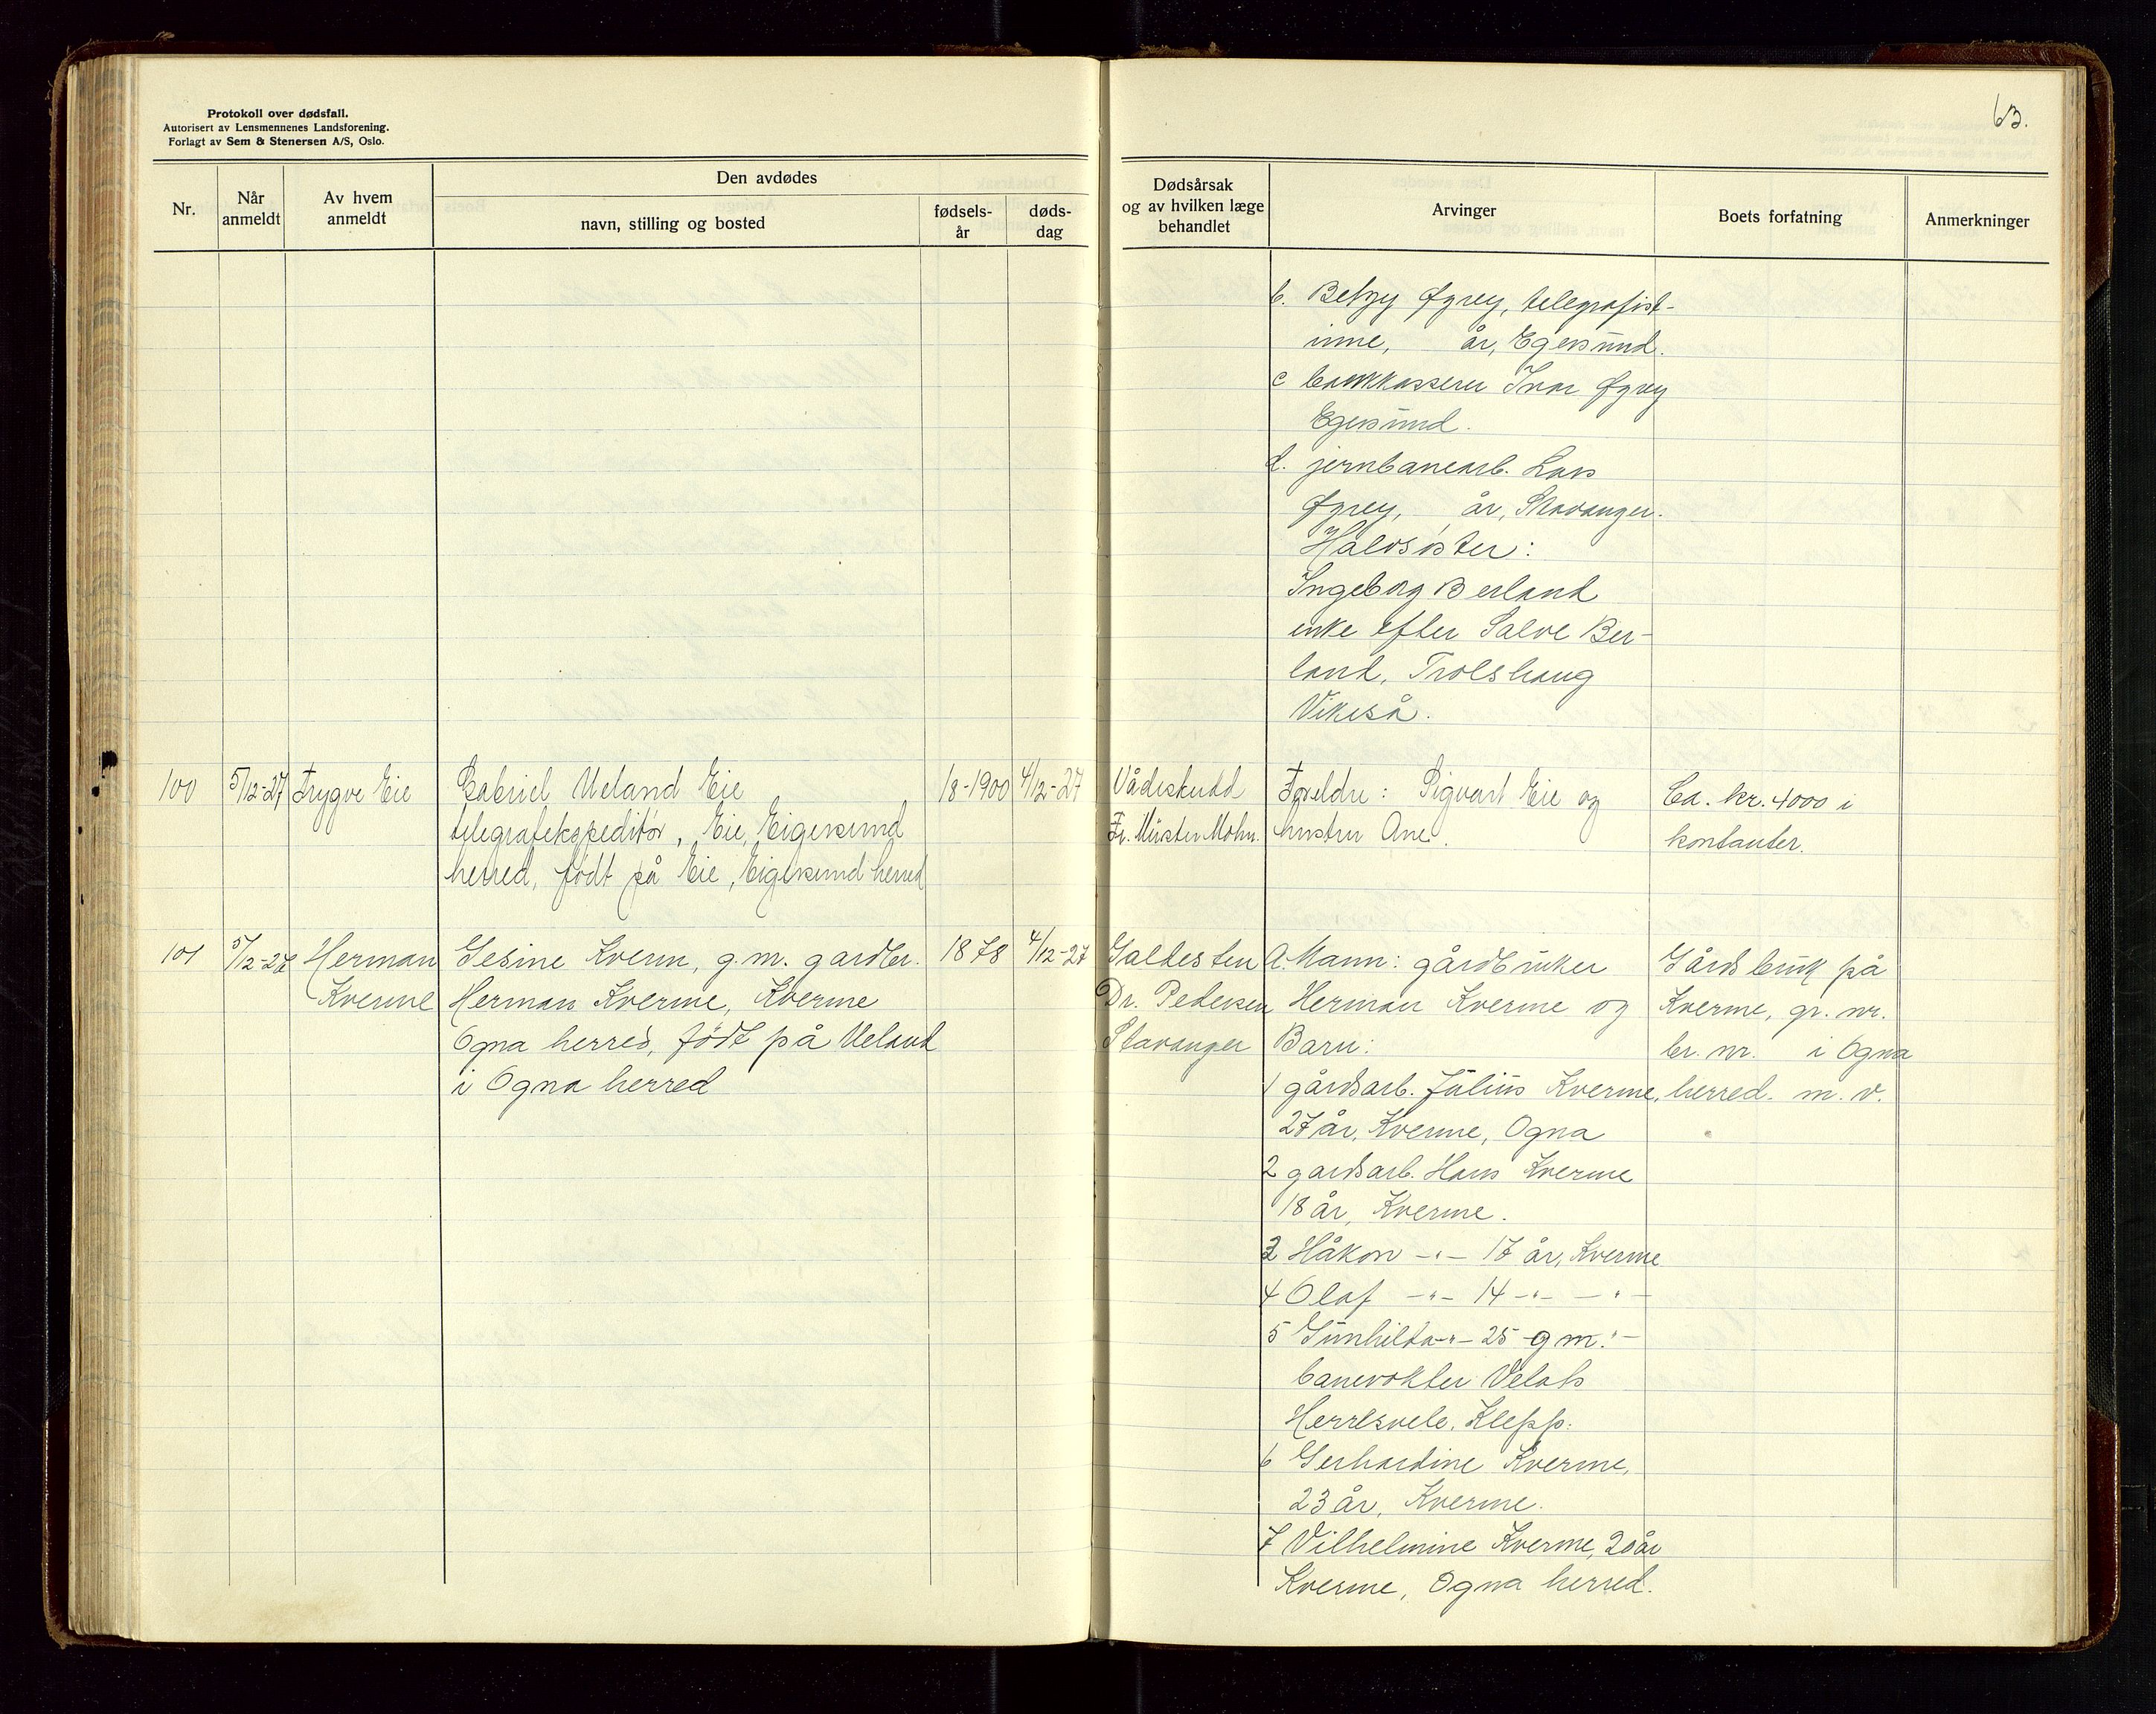 Protokoll over dødsfall.
Autorisert av Lensmennenes Landsforening.
Forlagt av Sem & Stenersen A/S, Oslo.
63.
Nr.
Når anmeldt
Av hvem anmeldt
Den avdødes
navn, stilling og bosted
fødsels-
år
døds-
dag
Dødsårsak
og av hvilken læge
behandlet
Arvinger
Boets forfatning
Anmerkninger
b. Betzy Øgrey, telegrafist-
inne, år, Egersund.
c bankkasserer Ivar Øgrey
Egersund.
d. jernbanearb. Lars
Øgrey, år, Stavanger.
Halvsøster:
Ingeborg Berland
enke efter Salve Ber-
land, Trolshaug
Vikeså.
100 5/12-27 Trygve Eie Gabriel Ueland Eie 18-1900 4/12-27 Vådeskudd Foreldre: Sigvart Eie og Ca. kr. 4000 i
telegrafekspeditør, Eie, Eigersund Mohn. hustru Ane. kontanter.
herred, født på Eie, Eigersund herred
101 5/12-27 Herman Gesine Kverm, g.m. gardbr. 1878 4/12-27 Galdesten A. Mann: gårdbruker Gårdsbruk på
Kverme Herman Kverme, Kverme Dr. Pedersen Herman Kverme og Kverme, gr. nr.
Ogna herred, født på Ueland Stavanger Barn: br. nr. i Ogna
i Ogna herred 1 gårdsarb. Julius Kverme, herred. m. v.
27 år, Kverme, Ogna
2 gardsarb. Hans Kverme
18 år, Kverme.
3 Håkon -"- 17 år, Kverme
4 Olaf -"- 14 -"- -"-
5 Gunhilda -"- 25 - g m. "-
banevokter Velats
Herresvele, Klepp.
6 Gerhardine Kverme,
23 år, Kverme.
7 Vilhelmine Kverme, 20 år
Kverme, Ogna herred.